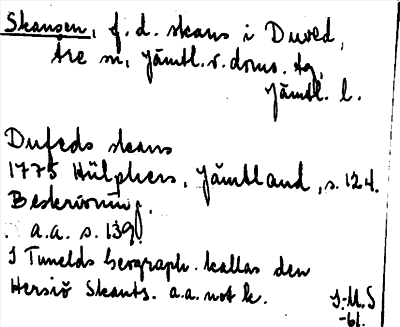 Skansen, f.d. skans i Duved,
Åre sn, Jämtl. v. doms. tg,
Jämtl. l.
Dufeds skans
1775 Hülphers, Jämtland, s. 124.
Beskrivning.
a.a. s. 139.
I Tunelds Geograph. kallas den
Hersiö Skants. a.a. not k.
J-M.S
-61.